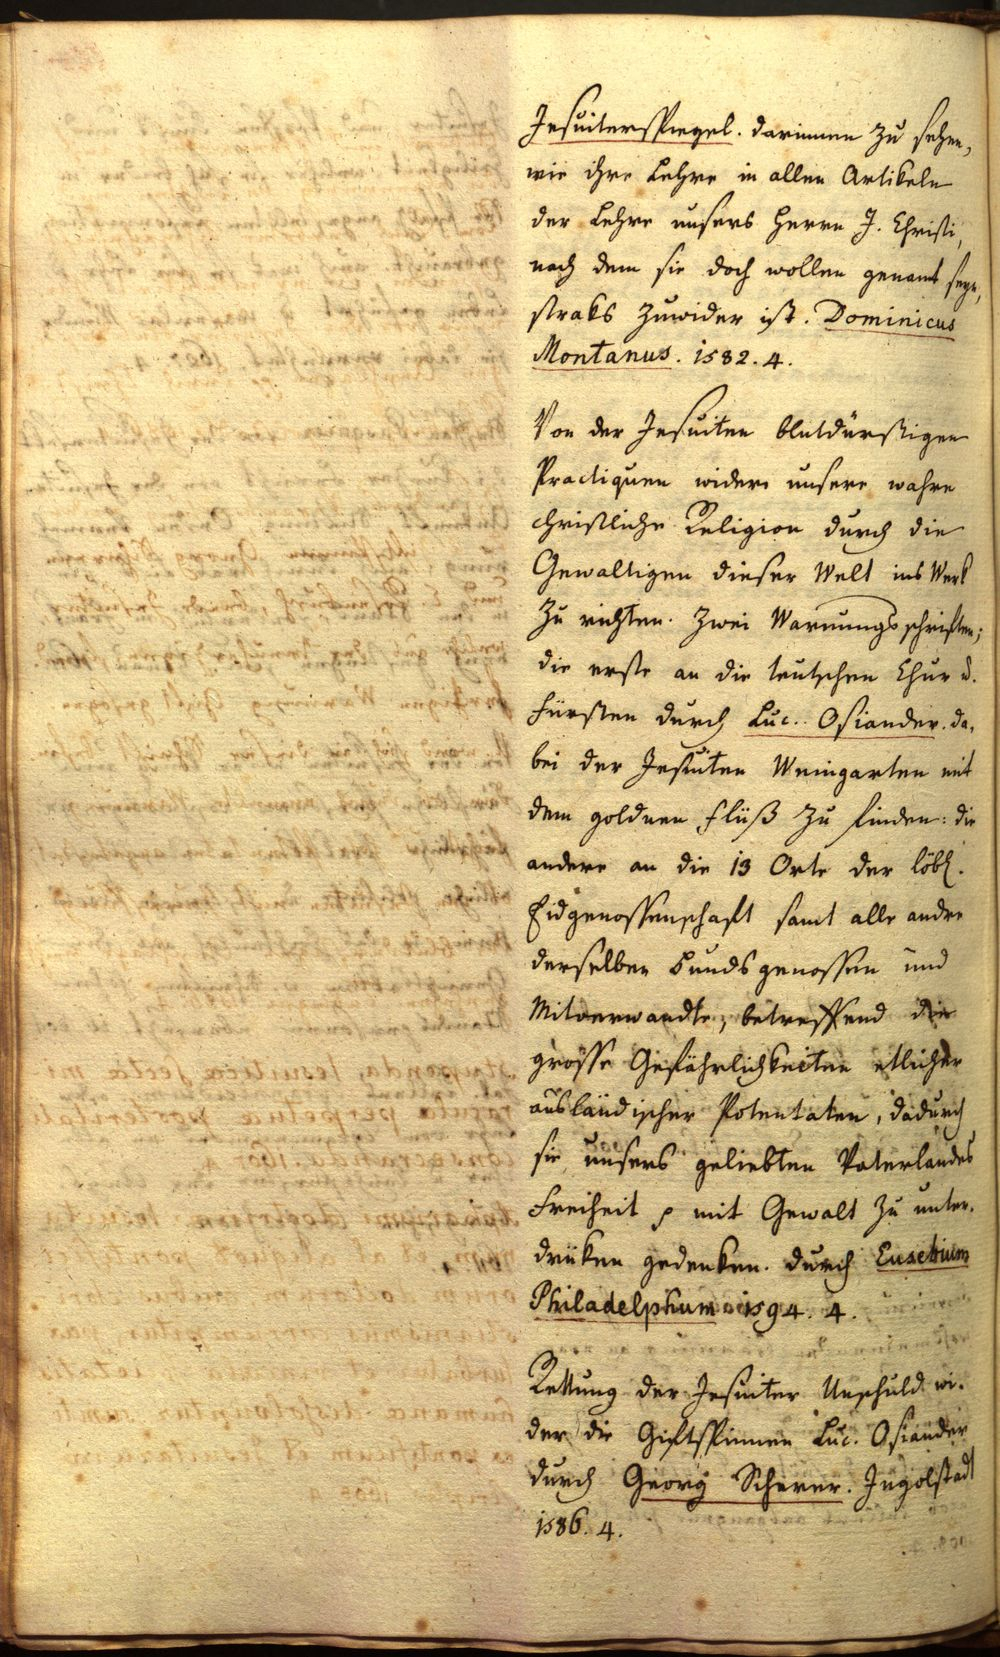 Jesuiterspiegel. darinnen zu sehen,
wie ihre Lehre in allen Artikeln
der Lehre unsers Herrn J. Christi,
nach dem sie doch wollen genant seyn,
straks zuwider ist. Dominicus
Montanus. 1582. 4.
Von der Jesuiten blutdürstigen
Practiquen wider unsere wahre
christliche Religion durch die
Gewaltigen dieser Welt ins Werk
zu richten. Zwei Warnungsschriften;
die erste an die teutschen Chur u.
Fürsten durch Luc. Osiander. da,
bei der Jesuiten Weingarten mit
dem goldnen Flüß zu finden: die
andere an die 13 Orte der löbl.
Eidgenossenschaft samt alle andre
derselben Bundsgenossen und
Mitverwandte, betreffend die
grosse Gefährlichkeiten etlicher
ausländischer Potentaten, dadurch
sie unsers geliebten Vaterlandes
Freiheit p mit Gewalt zu unter,
drüken gedenken. durch Eusebium
Philadelphum 1594. 4.
Rettung der Jesuiter Unschuld wi,
der die Giftspinnen Luc. Osiander
durch Georg Scherer. Ingolstadt
1586. 4.